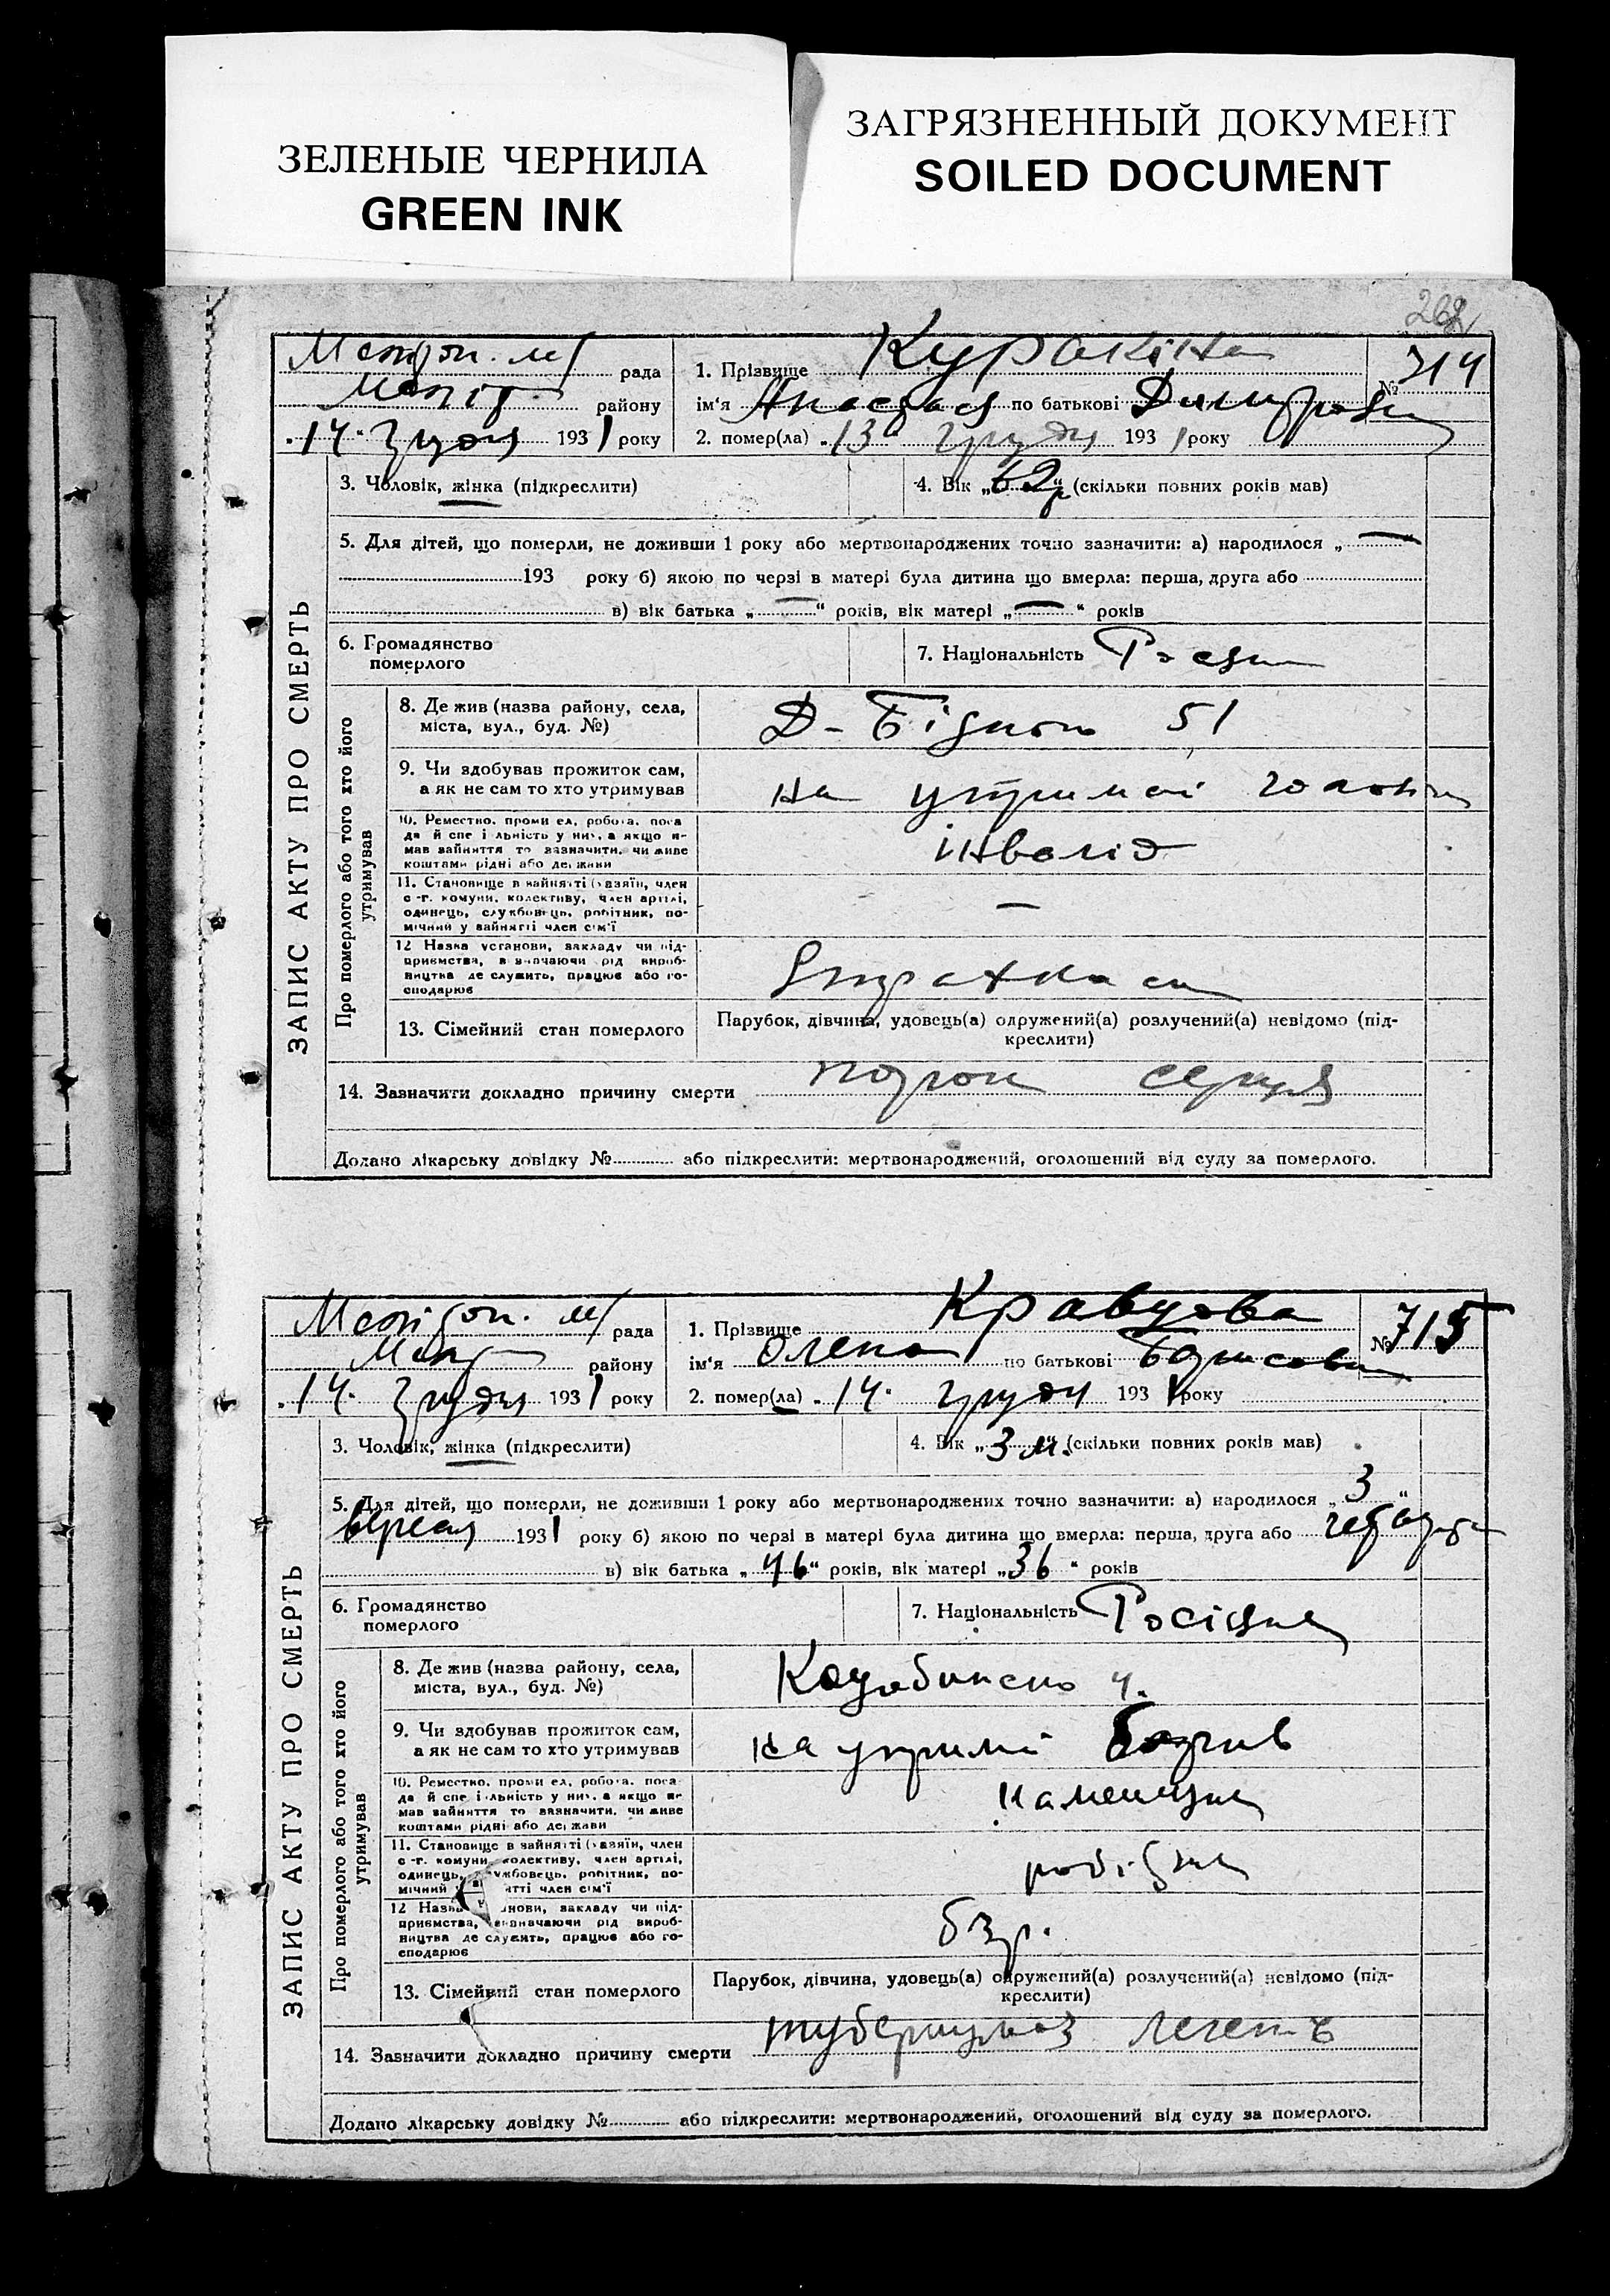 ЗЕЛЕНЫЕ ЧЕРНИЛА
GREEN INK
ЗАГРЯЗНЕННЫЙ ДОКУМЕНТ
SOILED DOCUMENT
ЗАПИС АКТУ ПРО СМЕРТЬ
рада
району
14 грудня 1931 року
1. Прізвище Куракіна
№ 714
ім'я Анастасія по батькові Дмитровна
2. помер(ла) „13" грудня 1931 року
3. Чоловік, жінка (підкреслити)
4. Вік „62р" (скільки повних років мав)
5. Для дітей, що померли, не доживши 1 року або мертвонароджених точно зазначити: а) народилося „—"
193 року б) якою по черзі в матері була дитина що вмерла: перша, друга або
в) вік батька „—" років, вік матері „—" років
6. Громадянство померлого
7. Національність
Про померлого або того хто його утримував
8. Де жив (назва району, села, міста, вул., буд. №)
51
9. Чи здобував прожиток сам, а як не сам то хто утримував
на утриман
10. Ремество, промисел, робота, посада й спеціальність у них, а якщо не мав зайняття то зазначити, чи живе коштами рідні або держави
інвалід
11. Становище в зайнятті (хазяїн, член с.-г. комуни, колективу, член артілі, одинець, службовець, робітник, помічний у зайнятті член сім'ї
—
12 Назва установи, закладу чи підприємства, визначаючи рід виробництва де служить, працює або господарює
13. Сімейний стан померлого
Парубок, дівчина, удовець(а) одружений(а) розлучений(а) невідомо (підкреслити)
14. Зазначити докладно причину смерти порок серця
Додано лікарську довідку № або підкреслити: мертвонароджений, оголошений від суду за померлого.
ЗАПИС АКТУ ПРО СМЕРТЬ
рада
району
14 грудня 1931 року
1. Прізвище Кравцова
№ 715
ім'я Олена по батькові Борисовна
2. помер(ла) „14 грудня 1931 року
3. Чоловік, жінка (підкреслити)
4. Вік „3 м." (скільки повних років мав)
5. Для дітей, що померли, не доживши 1 року або мертвонароджених точно зазначити: а) народилося „3"
вересня 1931 року б) якою по черзі в матері була дитина що вмерла: перша, друга або четверта
в) вік батька „46" років, вік матері „36" років
6. Громадянство померлого
7. Національність Росіянка
Про померлого або того хто його утримував
8. Де жив (назва району, села, міста, вул., буд. №)
4.
9. Чи здобував прожиток сам, а як не сам то хто утримував
на утрим батьків
10. Ремество, промисел, робота, посада й спеціальність у них, а якщо не мав зайняття то зазначити, чи живе коштами рідні або держави
каменщик
11. Становище в зайнятті (хазяїн, член с.-г. комуни, колективу, член артілі, одинець, службовець, робітник, помічний у зайнятті член сім'ї
робітник
12 Назва установи, закладу чи підприємства, визначаючи рід виробництва де служить, працює або господарює
бзр.
13. Сімейний стан померлого
Парубок, дівчина, удовець(а) одружений(а) розлучений(а) невідомо (підкреслити)
14. Зазначити докладно причину смерти туберкульоз легень
Додано лікарську довідку № або підкреслити: мертвонароджений, оголошений від суду за померлого.